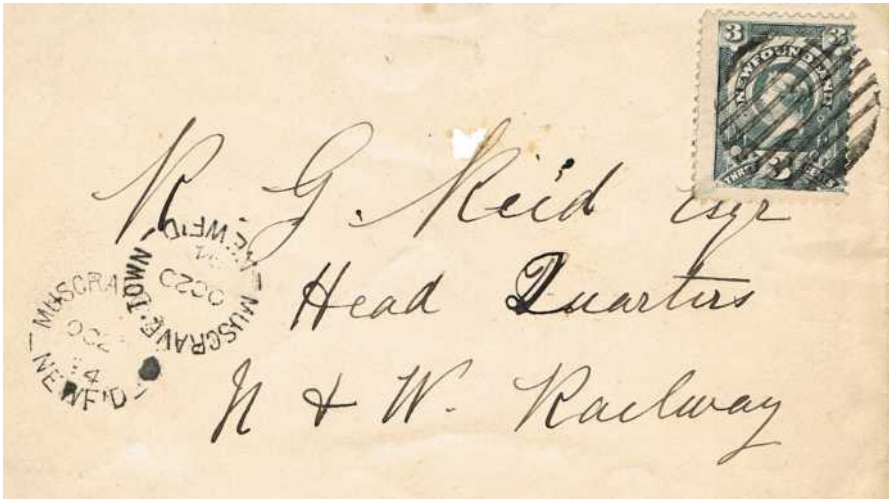 3 3
NEWFOUNDLAND
3
R G. Reid Esqr
Head Quarters
N & W. Railway
MUSGRAVE TOWN
OC20
NEWF'D
MUSGRA
OC2
94
NEWF'D